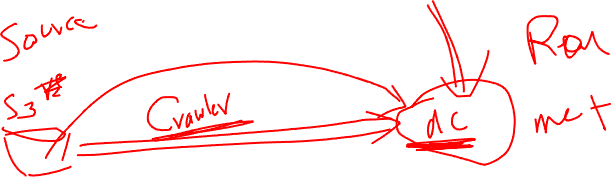 Source
S3
Crawler
dc
met